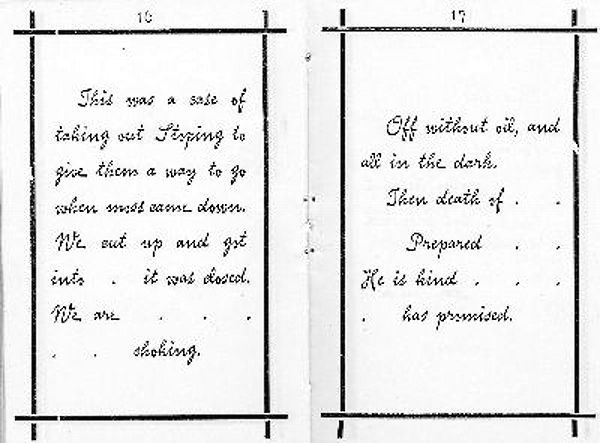 16
This was a case of
taking out Stoping to
give them a way to go
when moss came down.
We cut up and got
into . it was closed.
We are . . .
. . shoking.
17
Off without oil, and
all in the dark.
Then death of . .
Prepared . .
He is kind . . .
. has promised.